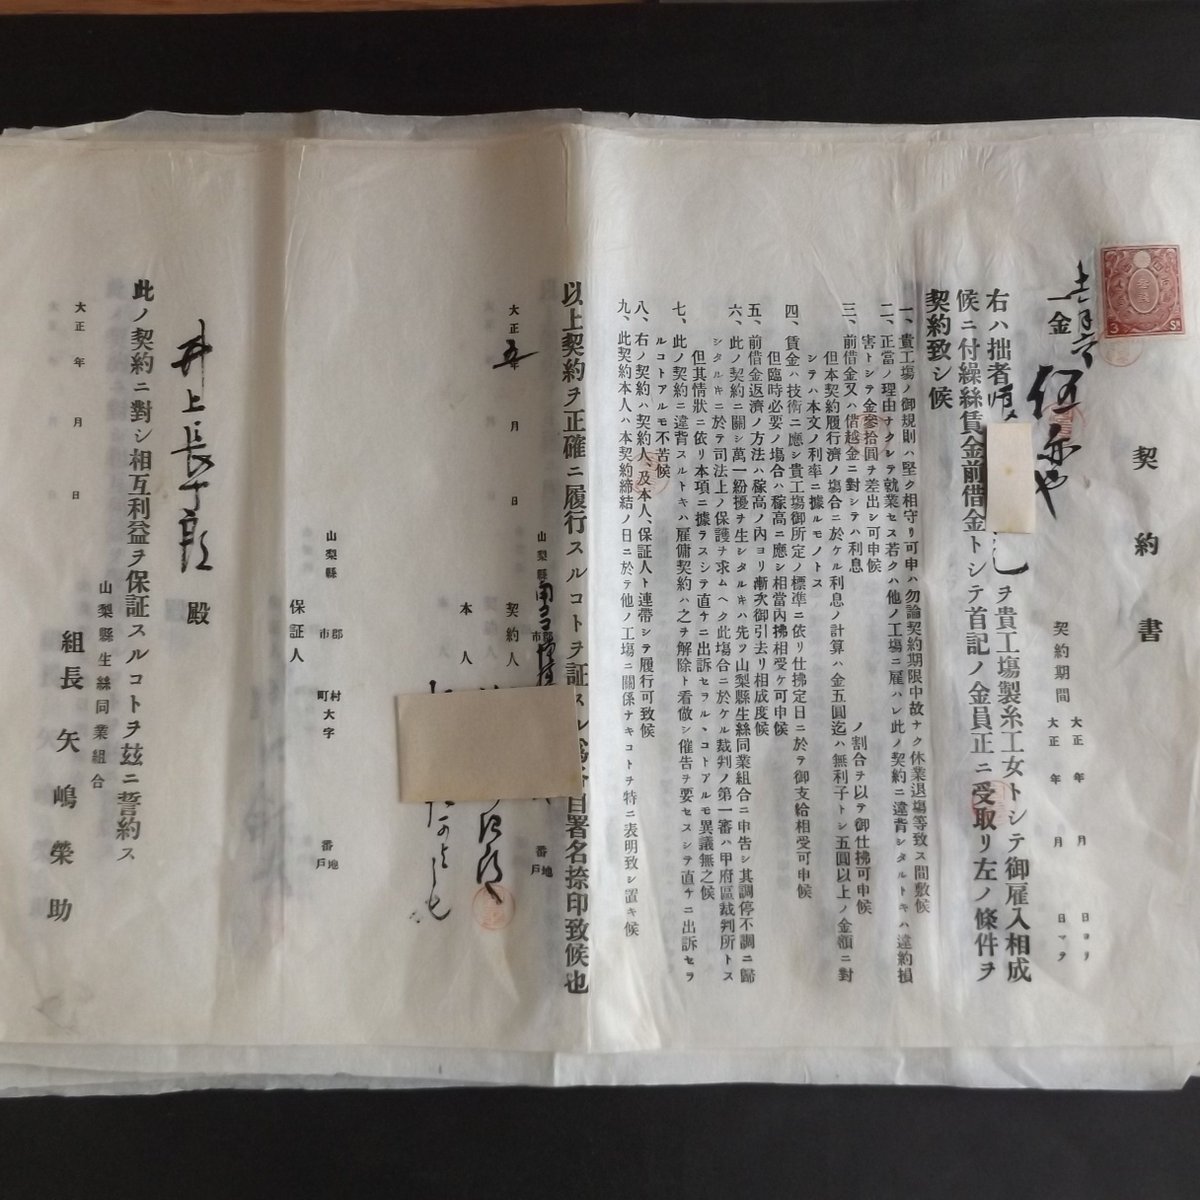 契約書
3 Sn
契約期間
大正 年 月 日ヨリ
大正 年 月 日マテ
金
右ハ拙者
ヲ貴工塲製糸工女トシテ御雇入相成
候ニ付繰絲賃金前借金トシテ首記ノ金員正ニ受取リ左ノ條件ヲ
契約致シ候
一、貴工塲ノ御規則ハ堅ク相守リ可申ハ勿論契約期限中故ナク休業退塲等致ス間敷候
二、正當ノ理由ナクシテ就業セス若クハ他ノ工塲ニ雇ハレ此ノ契約ニ違背シタルトキハ違約損
害トシテ金參拾圓ヲ差出シ可申候
三、前借金又ハ借越金ニ對シテハ利息 ノ割合ヲ以テ御仕拂可申候
但本契約履行濟ノ塲合ニ於ケル利息ノ計算ハ金五圓迄ハ無利子トシ五圓以上ノ金額ニ對
シテハ本文ノ利率ニ據ルモノトス
四、賃金ハ技術ニ應シ貴工塲御所定ノ標準ニ依リ仕拂定日ニ於テ御支給相受可申候
但臨時必要ノ塲合ハ稼高ニ應シ相當內拂相受ケ可申候
五、前借金返濟ノ方法ハ稼高ノ內ヨリ漸次御引去リ相成度候
六、此ノ契約ニ關シ萬一紛擾ヲ生シタルキハ先ツ山梨縣生絲同業組合ニ申告シ其調停不調ニ歸
シタルキニ於テ司法上ノ保護ヲ求ムヘク此塲合ニ於ケル裁判ノ第一審ハ甲府區裁判所トス
但其情狀ニ依リ本項ニ據ラスシテ直チニ出訴セラルヽコトアルモ異議無之候
七、此ノ契約ニ違背スルトキハ雇傭契約ハ之ヲ解除ト看做シ催告ヲ要セスシテ直チニ出訴セラ
ルコトアルモ不苦候
八、右ノ契約ハ契約人、及本人、保証人ト連帶シテ履行可致候
九、此契約本人ハ本契約締結ノ日ニ於テ他ノ工塲ニ關係ナキコトヲ特ニ表明致シ置キ候
以上契約ヲ正確ニ履行スルコトヲ証スル爲メ自署名捺印致候也
大正五年 月 日
山梨縣 市郡 番地戶
契約人
本人
山梨縣 市郡 町村大字 番地戶
保証人
井上長 郎 殿
此ノ契約ニ對シ相互利益ヲ保証スルコトヲ玆ニ誓約ス
山梨縣生絲同業組合
大正 年 月 日
組長 矢嶋榮助